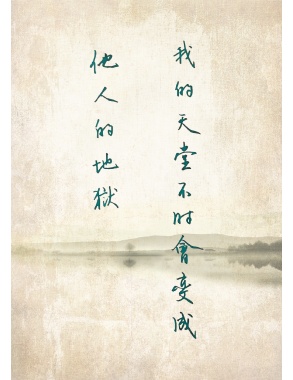 我的天堂不时會变成
他人的地獄